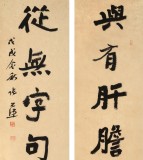 與有肝膽
從無字句
戊戌